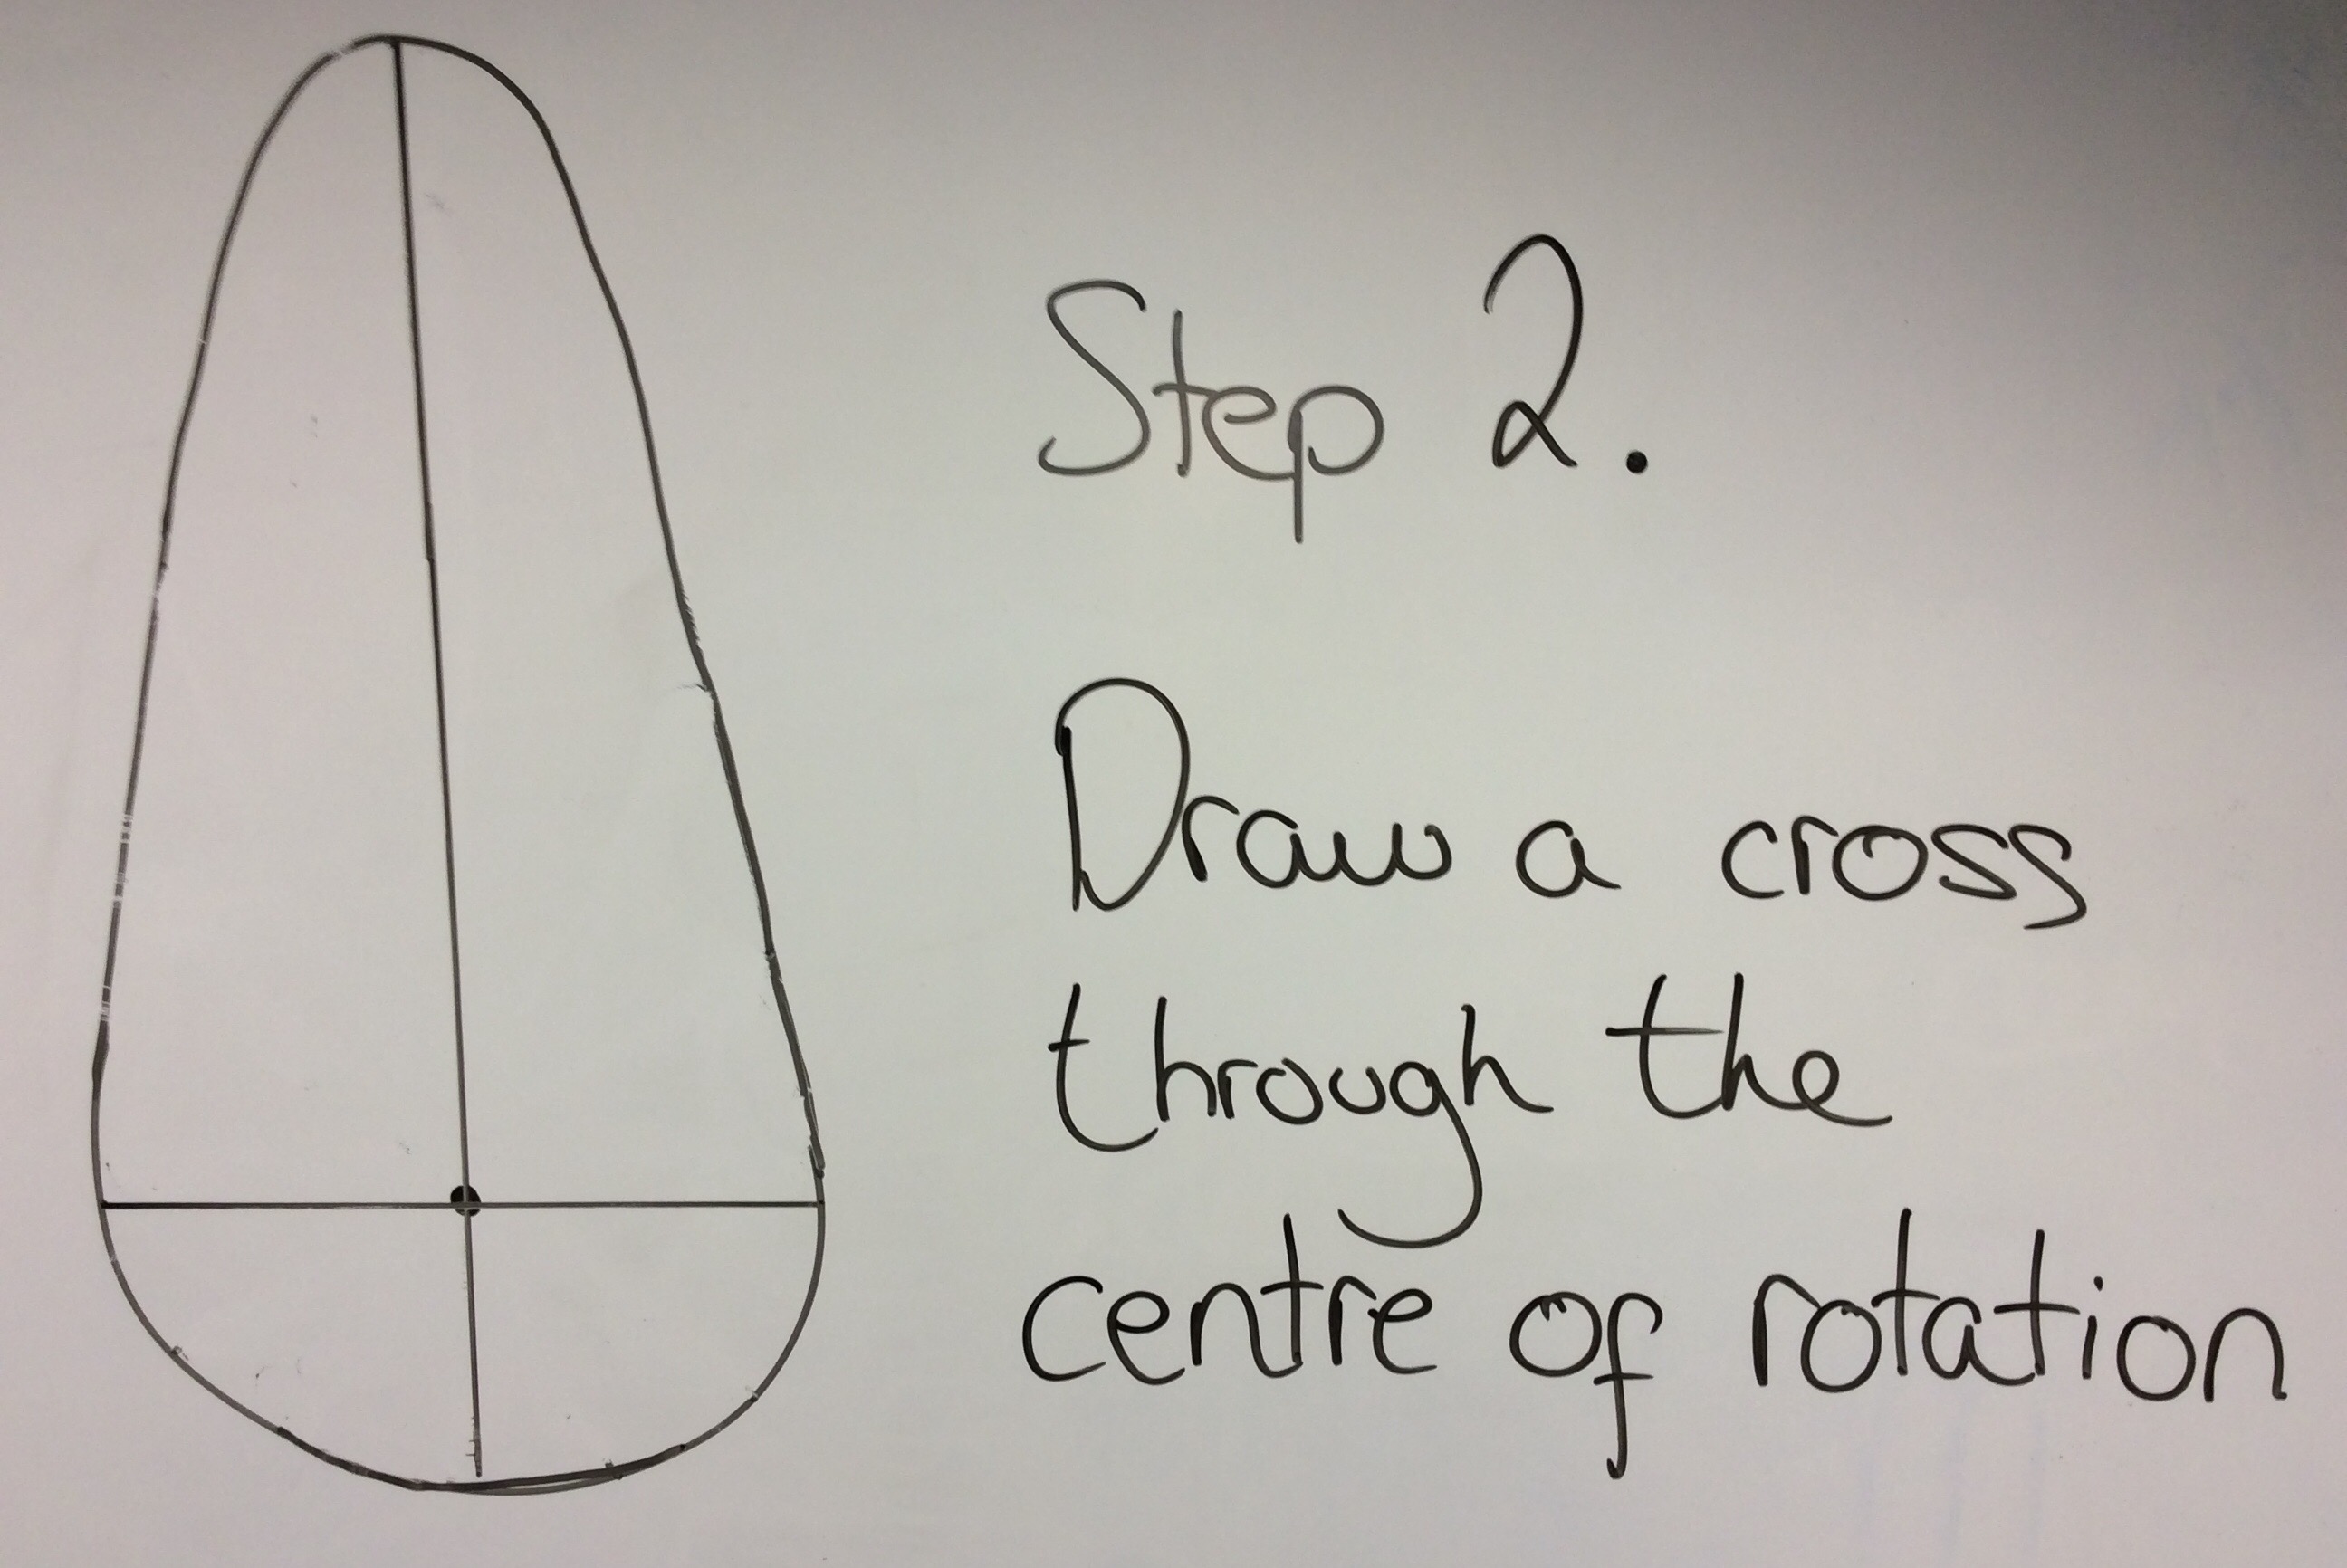 Step 2.
Draw a cross
through the
centre of rotation